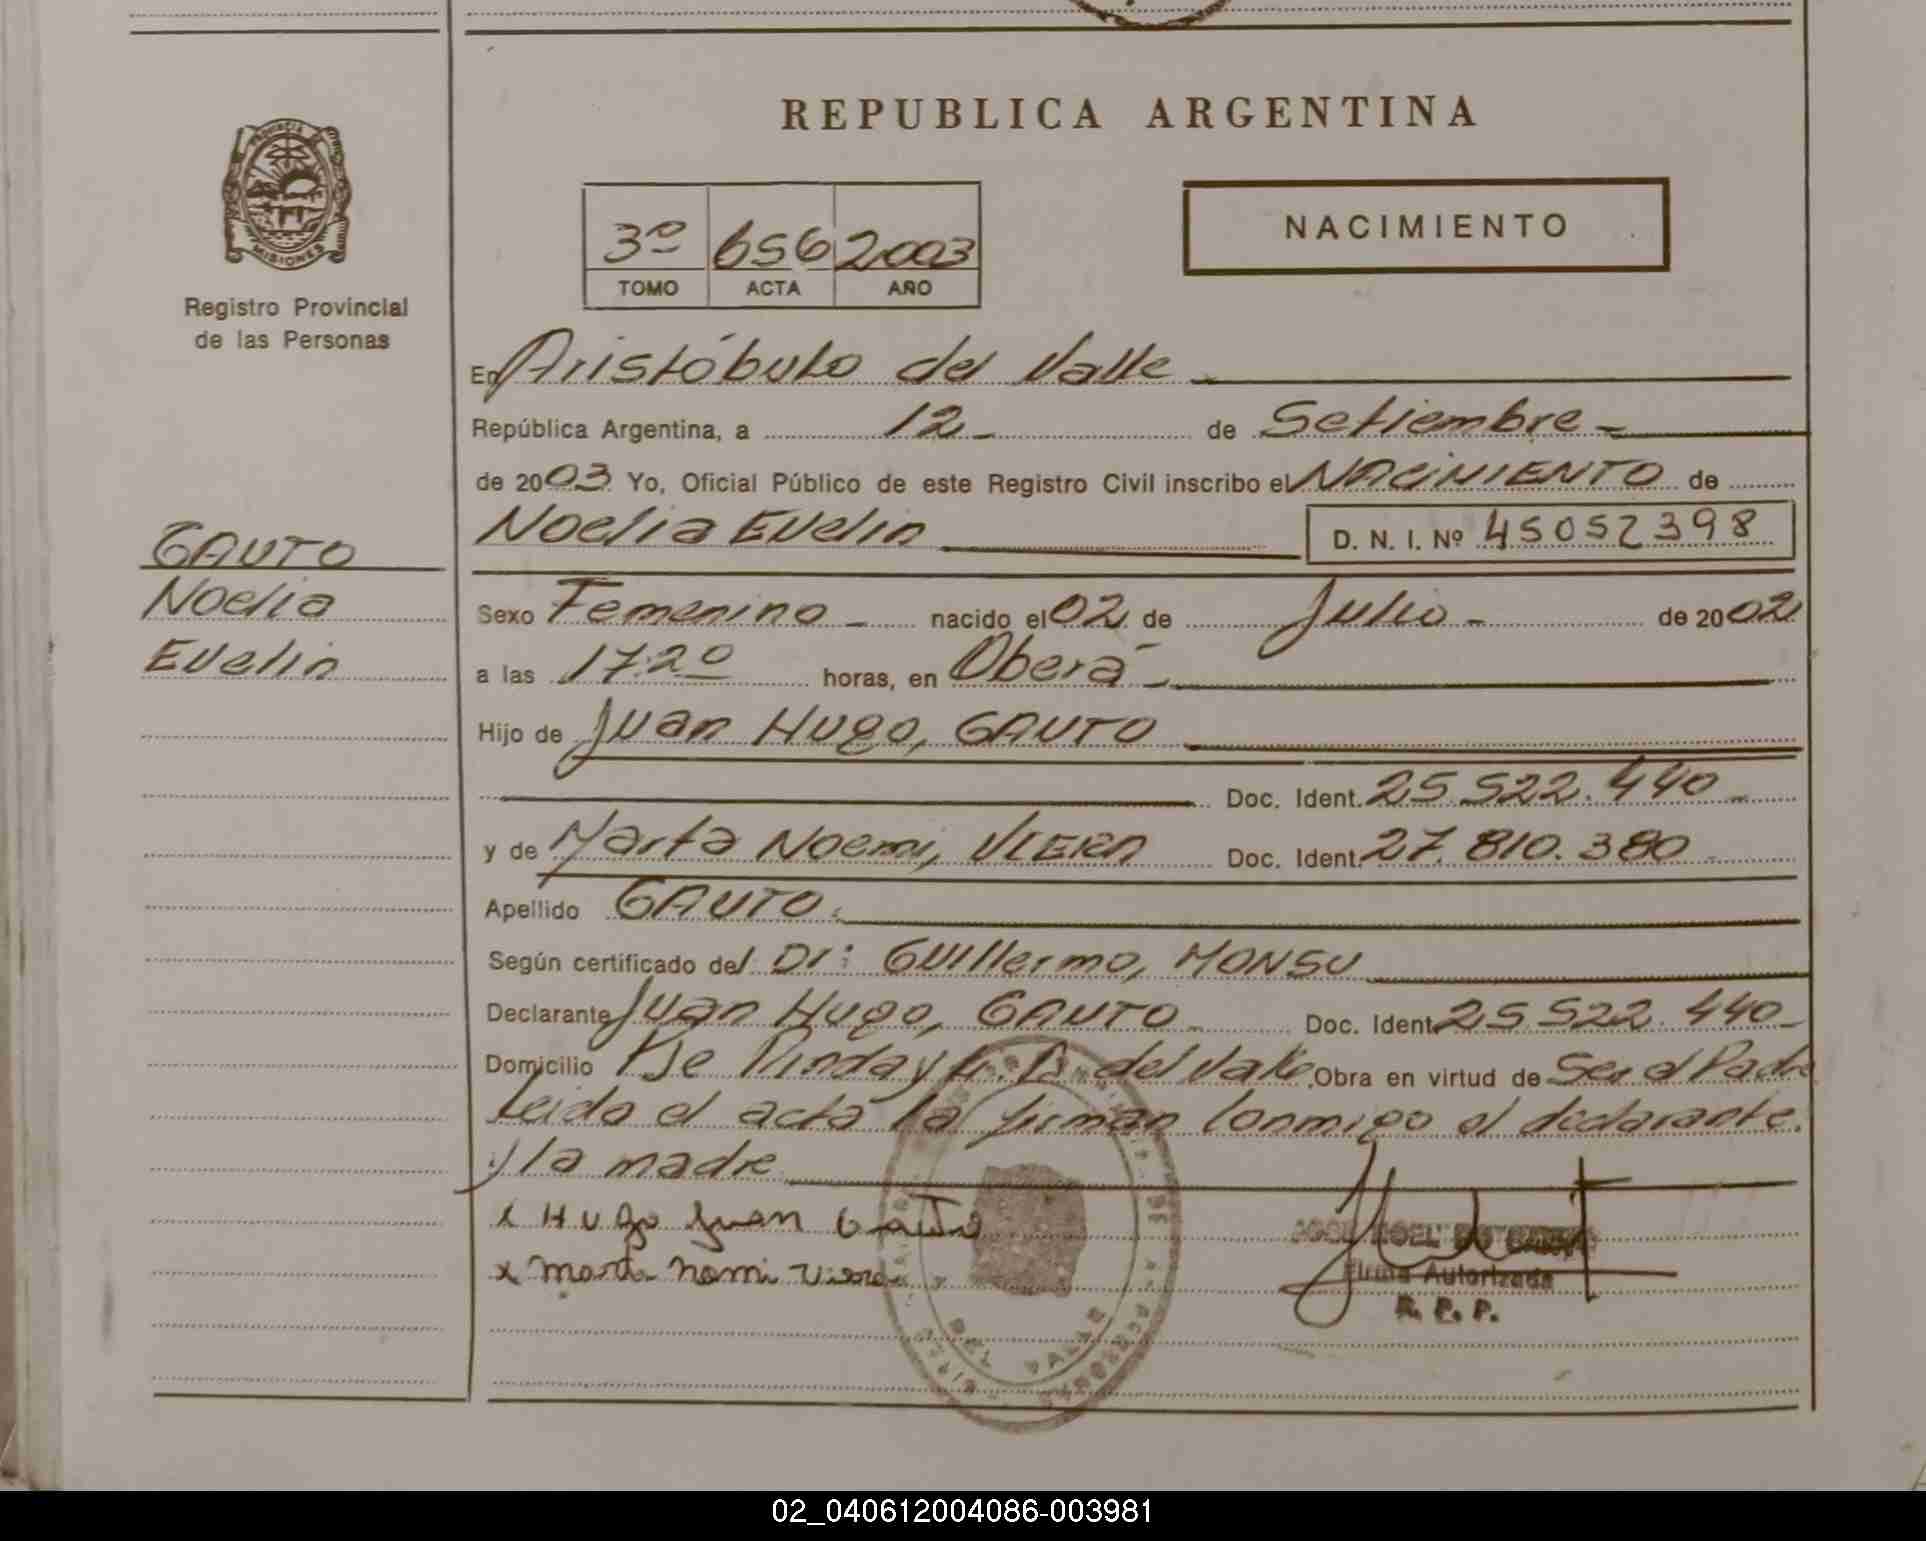 REPUBLICA ARGENTINA
PROVINCIA
MISIONES
Registro Provincial
de las Personas
NACIMIENTO
3º 656 2003
TOMO ACTA AÑO
En Aristóbulo del Valle
República Argentina, a 12 de Setiembre
de 2003 Yo, Oficial Público de este Registro Civil inscribo el NACIMIENTO de
Noelia Evelin D. N. I. Nº 45052398
GAUTO
Noelia
Evelin
Sexo Femenino nacido el 02 de Julio de 2002
a las 17:20 horas, en Oberá
Hijo de Juan Hugo, GAUTO
Doc. Ident. 25.522.440
y de Marta Noemi, VIERA Doc. Ident. 27.810.380
Apellido GAUTO
Según certificado del Dr: Guillermo, MONSU
Declarante Juan Hugo, GAUTO Doc. Ident. 25.522.440
Domicilio del Valle Obra en virtud de Ser el Padre
Leida el acta la firman conmigo el declarante
y la madre
x Hugo Juan Gauto
x Marta Nomi Viera
Firma Autorizada
R. P. P.
DEL VALLE
02_040612004086-003981